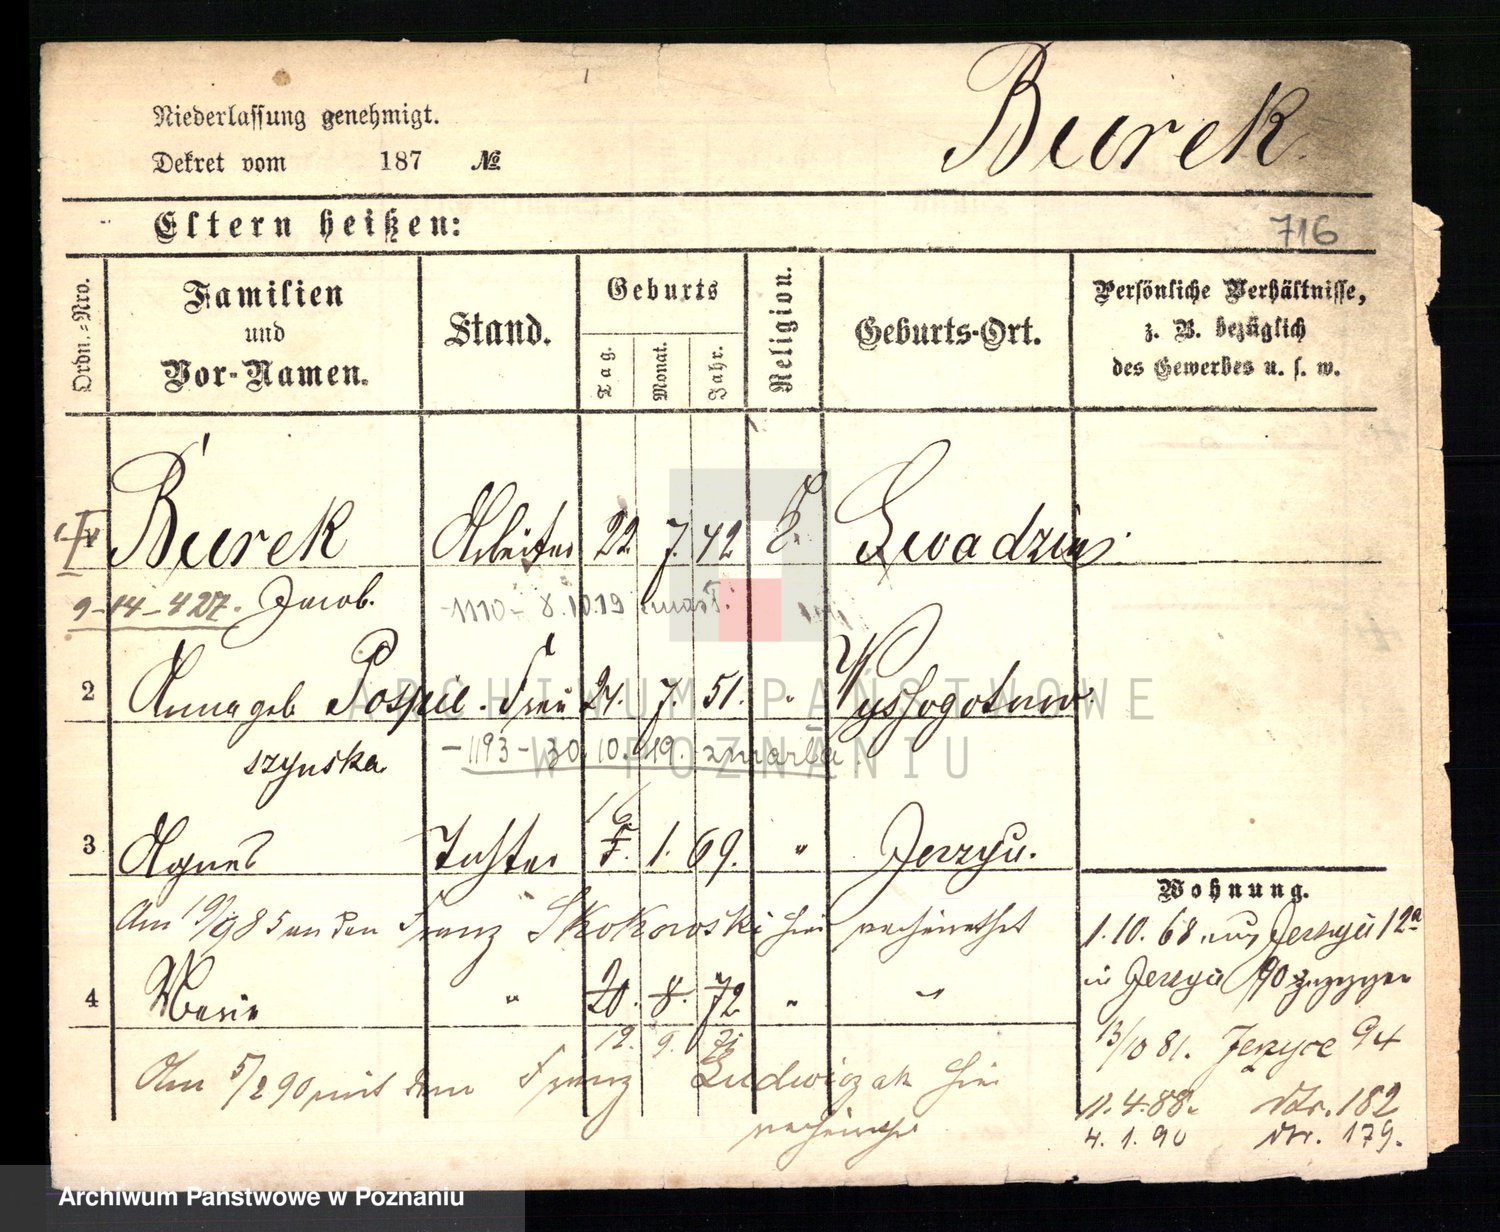 Niederlassung genehmigt.
Dekret vom 187 №
Burek
Eltern heißen:
716
Ordn.-Nro.
Familien
und
Vor-Namen.
Stand.
Geburts
Tag.
Monat.
Jahr.
Religion.
Geburts-Ort.
Persönliche Verhältnisse,
z. B. bezüglich
des Gewerbes u. s. w.
Burek Arbeiter 22. 7. 42
9-14-427. Jacob. -1110- 8.10.19 zmarł.
2 Anna geb Pospie- Frau 24. 7. 51. "
szynska -1193-30.10.19. zmarła.
16
3 Agnes Tochter 1. 69. " Jerzyu.
Am 19/9 85 an den Franz Skokowski hier verheirathet
4 Marie " 20. 8. 72 " "
12. 9. 71
Am 5/2 90 mit dem Franz Ludwiczak hier
verheirathet
Wohnung.
1.10.68 aus Jerzyu 12a
in Jerzyu 90 gezogen
13/10 81. Jerzyce 94
11.4.88. Nr. 182
4.1.90 Nr. 179.
ARCHIWUM PAŃSTWOWE
W POZNANIU
Archiwum Państwowe w Poznaniu